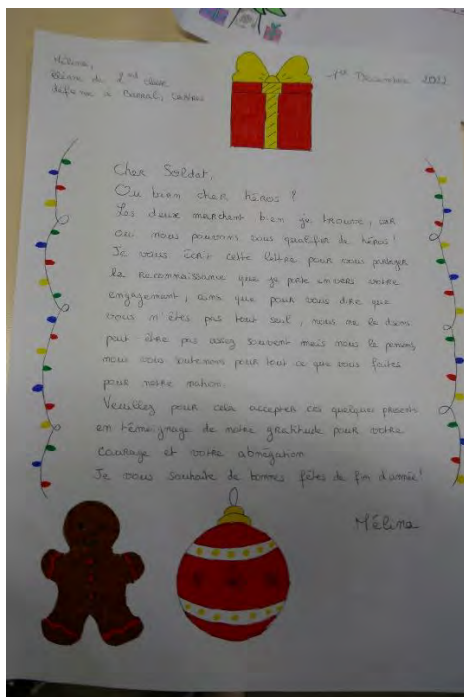 Mélina,
élève de 2nd classe
défense à
1er Décembre 2022
Cher Soldat,
Ou bien cher héros ?
Les deux marchent bien je trouve, car
oui nous pouvons vous qualifier de héros !
Je vous écris cette lettre pour vous partager
la reconnaissance que je porte envers votre
engagement, ainsi que pour vous dire que
vous n'êtes pas tout seul, nous ne le disons
peut être pas assez souvent mais nous le pensons,
nous vous soutenons pour tout ce que vous faites
pour notre nation.
Veuillez pour cela accepter ces quelques présents
en témoignage de notre gratitude pour votre
courage et votre abnégation.
Je vous souhaite de bonnes fêtes de fin d'année !
Mélina